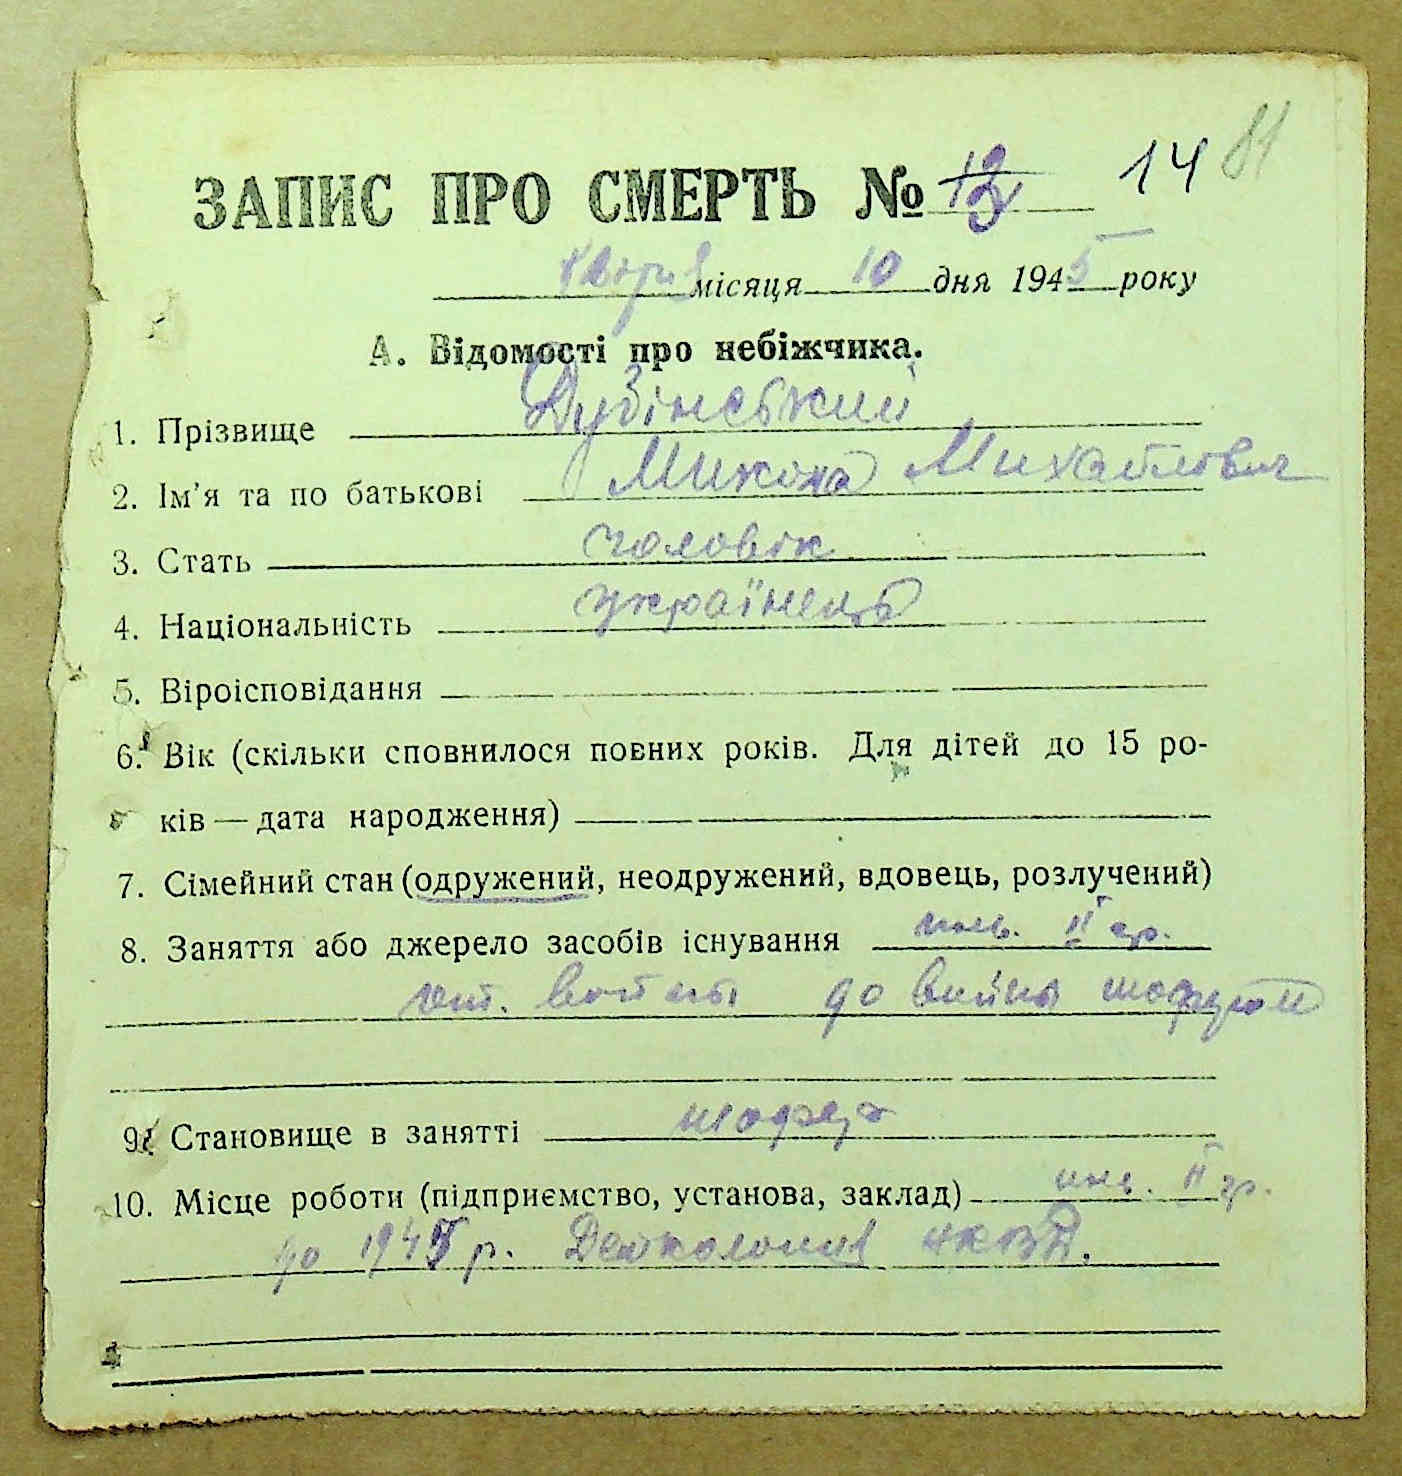 ЗАПИС ПРО СМЕРТЬ № 14 81
місяця 10 дня 1945 року
А. Відомості про небіжчика.
1. Прізвище Дубінський
2. Ім'я та по батькові Микола Михайлович
3. Стать чоловік
4. Національність українець
5. Віроісповідання
6. Вік (скільки сповнилося повних років. Для дітей до 15 ро-
ків — дата народження)
7. Сімейний стан (одружений, неодружений, вдовець, розлучений)
8. Заняття або джерело засобів існування инв. II гр.
от. войны до вийны шофером
9. Становище в занятті шофер
10. Місце роботи (підприємство, установа, заклад) инв. II гр.
до 1941 р. НКВД.